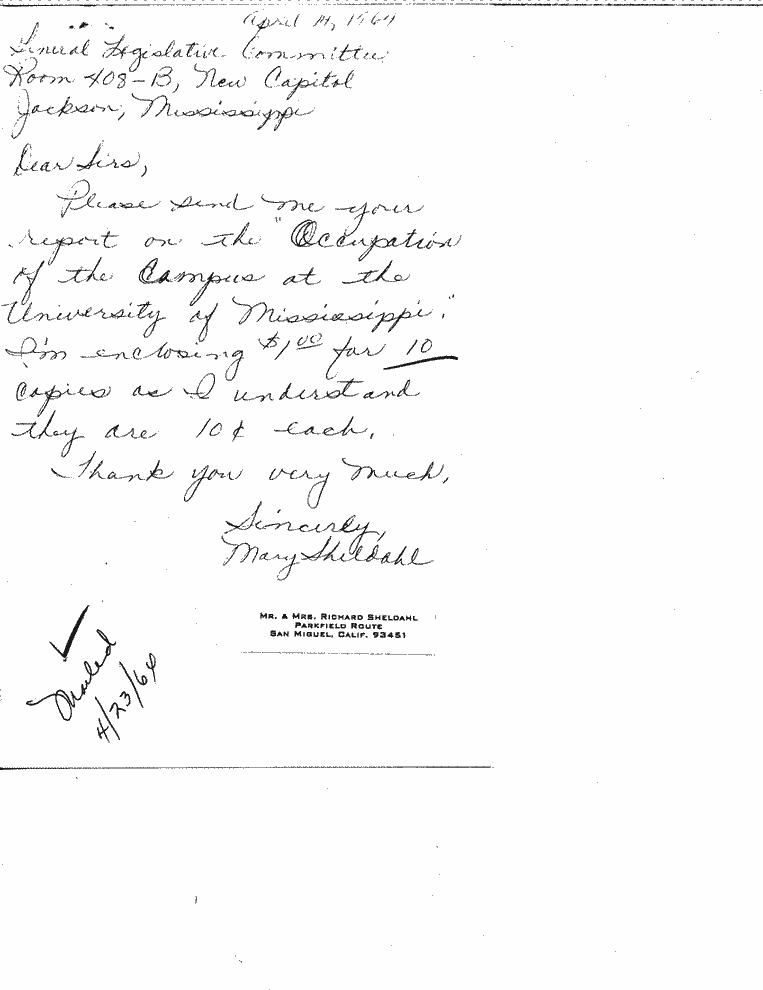 April 14, 1964
General Legislative Committee
Room 408-B, New Capitol
Jackson, Mississippi
Dear Sirs,
Please send me your
report on the "Occupation
of the Campus at the
University of Mississippi."
I'm enclosing $1.00 for 10
copies as I understand
they are 10¢ each.
Thank you very much,
Sincerly,
Mary Sheldahl
MR. & MRS. RICHARD SHELDAHL
PARKFIELD ROUTE
SAN MIGUEL, CALIF. 93451
Mailed
4/23/64